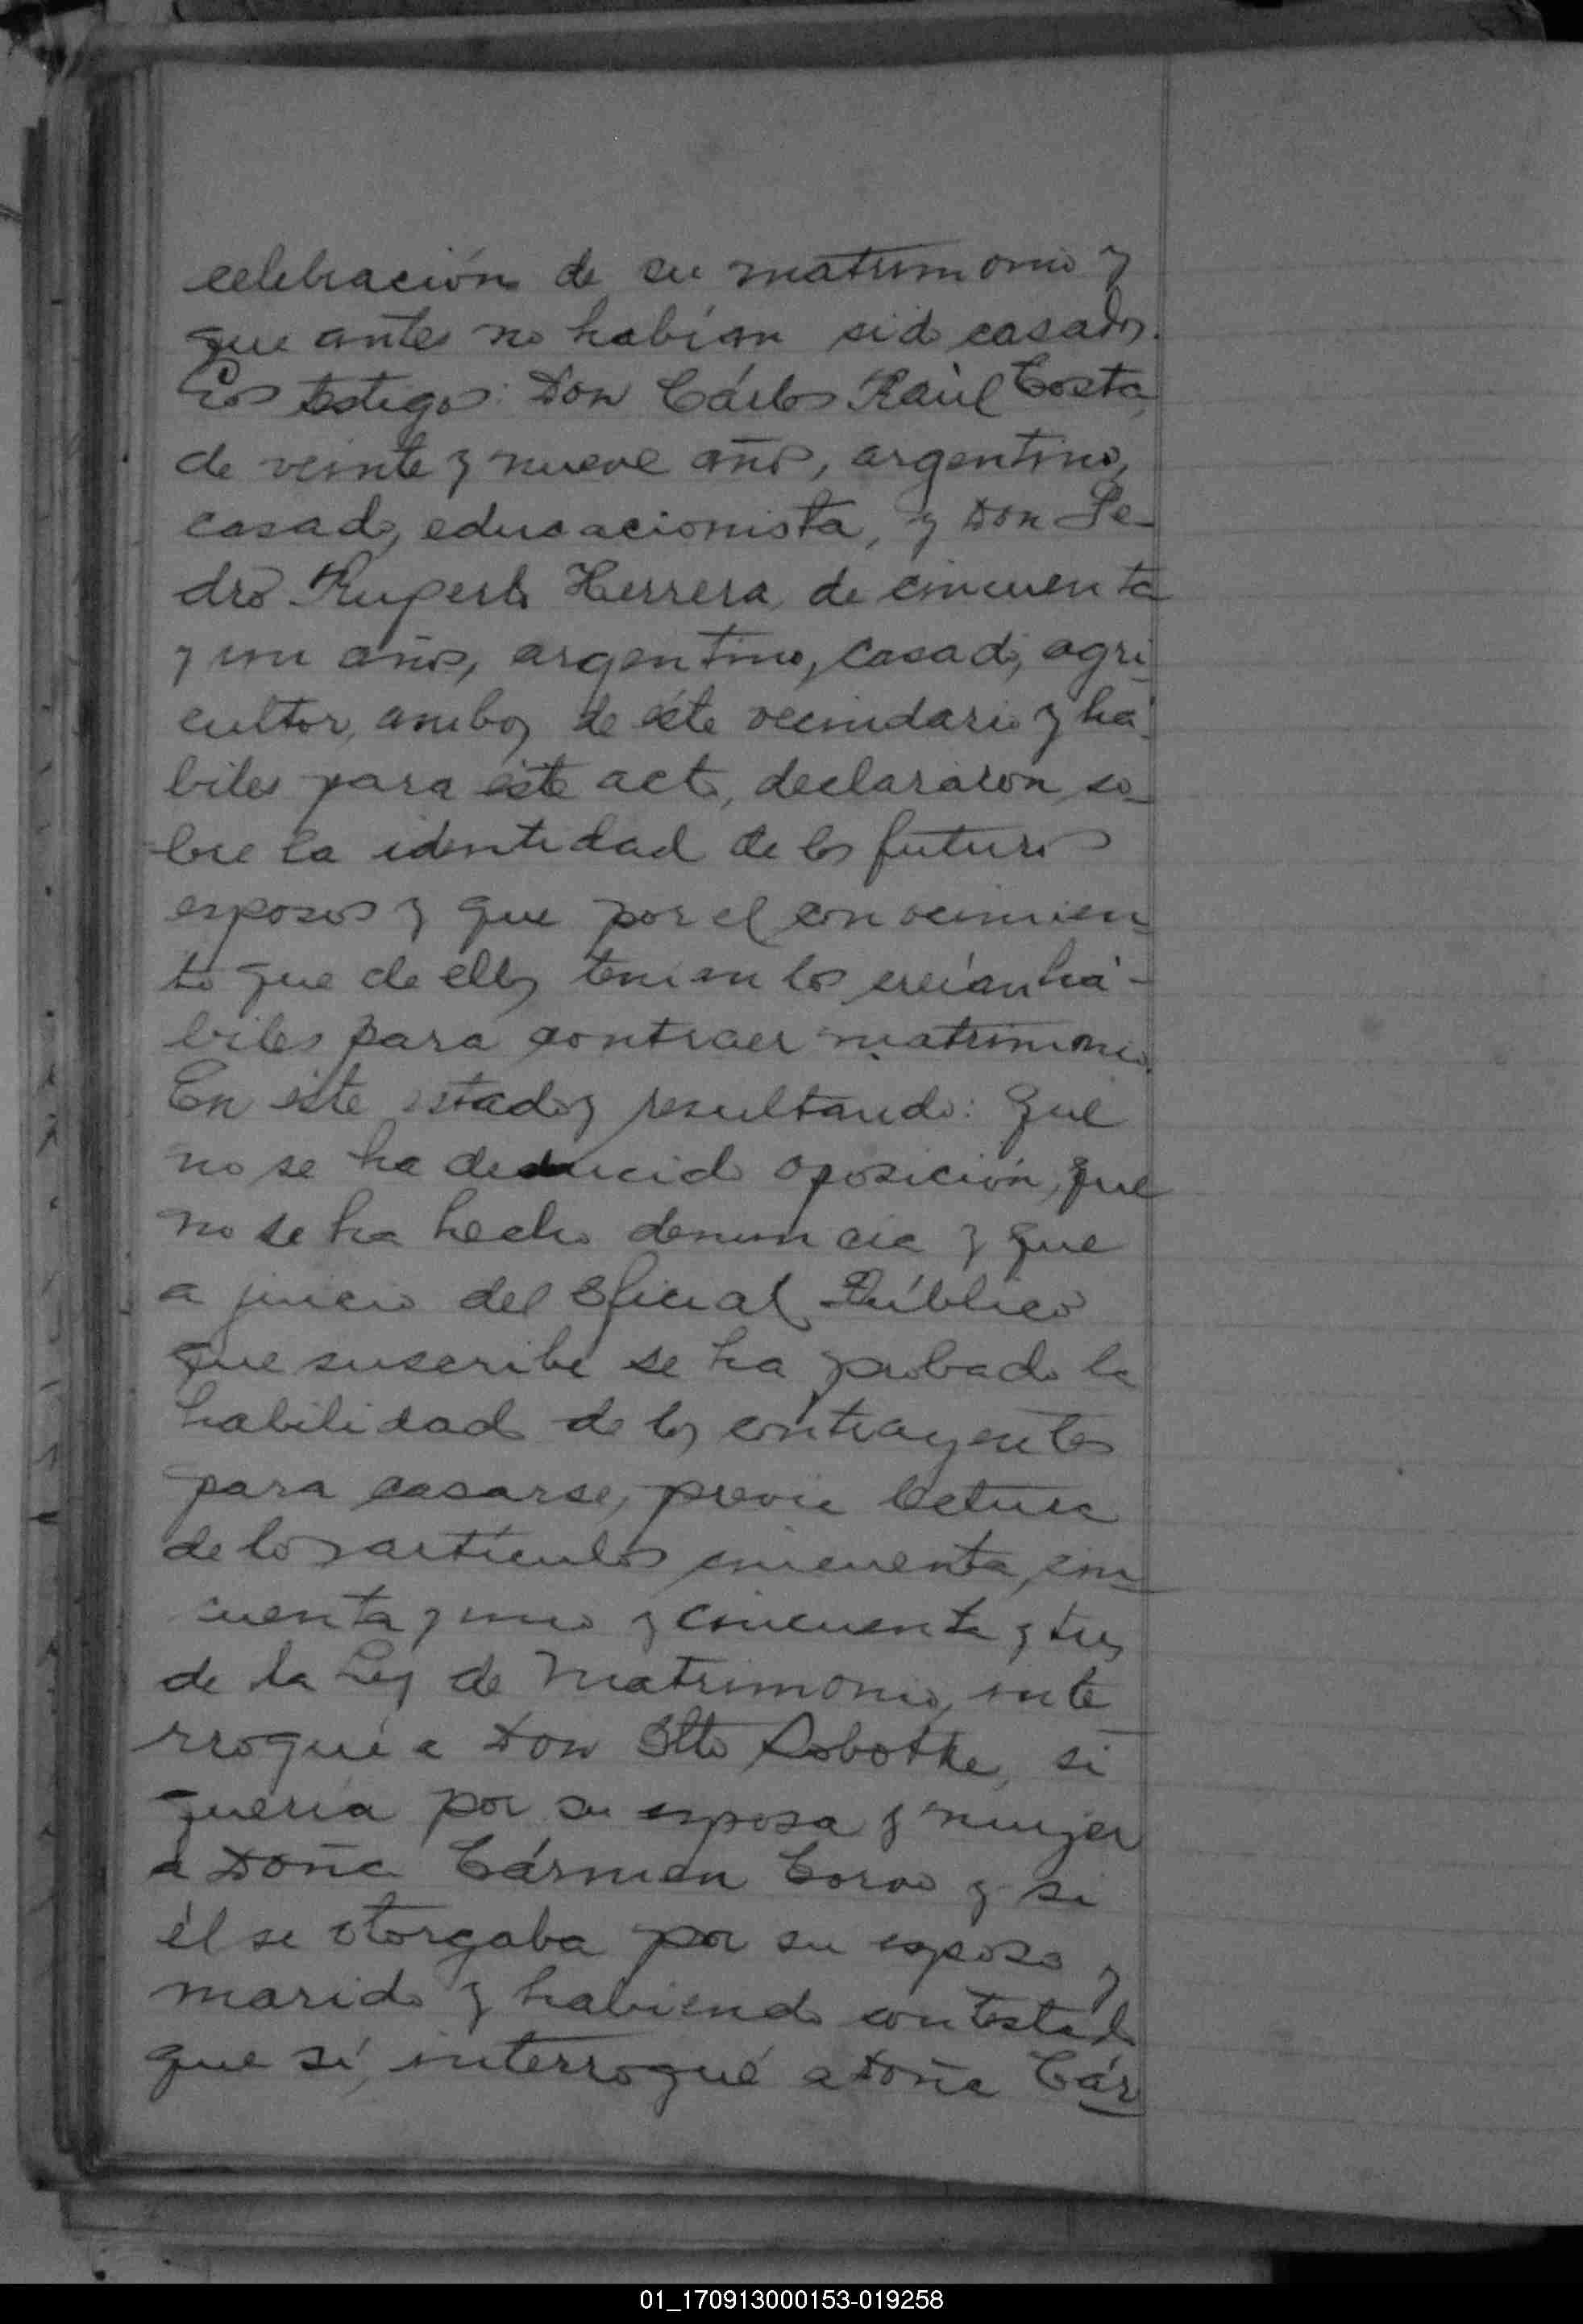 celebración de su matrimonio y
que antes no habían sido casados.
Los testigos: Don Cárlos Raúl Costa,
de veinte y nueve años, argentino,
casado, educacionista, y Don Pe-
dro Ruperto Herrera, de cincuenta
y un años, argentino, casado, agri-
cultor, ambos de éste vecindario y há-
biles para éste acto, declararon so-
bre la identidad de los futuros
esposos y que por el conocimien-
to que de ellos tenian los creían há-
biles para contraer matrimonio.
En éste estado y resultando: Que
no se ha deducido oposición, que
no se ha hecho denuncia y que
a juicio del Oficial Público
que suscribe se ha probado la
habilidad de los contrayentes
para casarse, previa lectura
de los artículos cincuenta, cin-
cuenta y uno y cincuenta y tres
de la Ley de Matrimonio, inte-
rrogué a Don Otto Robotke, si
quería por su esposa y mujer
a Doña Cármen Corvo y si
él se otorgaba por su esposo y
marido y habiendo contestado
que sí, interrogué a Doña Cár-
01_170913000153-019258